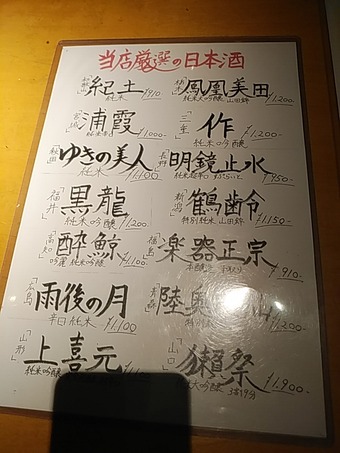 当店厳選の日本酒
和歌山 紀土 純米 ¥910-
栃木 鳳凰美田 純米大吟醸 山田錦 ¥1,200-
宮城 浦霞 純米 ¥1,000-
三重 作 純米吟醸 ¥1,200-
秋田 ゆきの美人 純米 ¥1,100
長野 明鏡止水 純米 ¥950-
福井 黒龍 純米吟醸 ¥1,200
新潟 鶴齢 特別純米 山田錦 ¥1,150-
高知 酔鯨 吟麗 純米吟醸 ¥1,100
福島 楽器正宗 本醸造 ¥910-
広島 雨後の月 辛口純米 ¥1,100
青森 陸奥 ¥1,200-
山形 上喜元 純米吟醸
山口 獺祭 大吟醸 3割9分 ¥1,900-